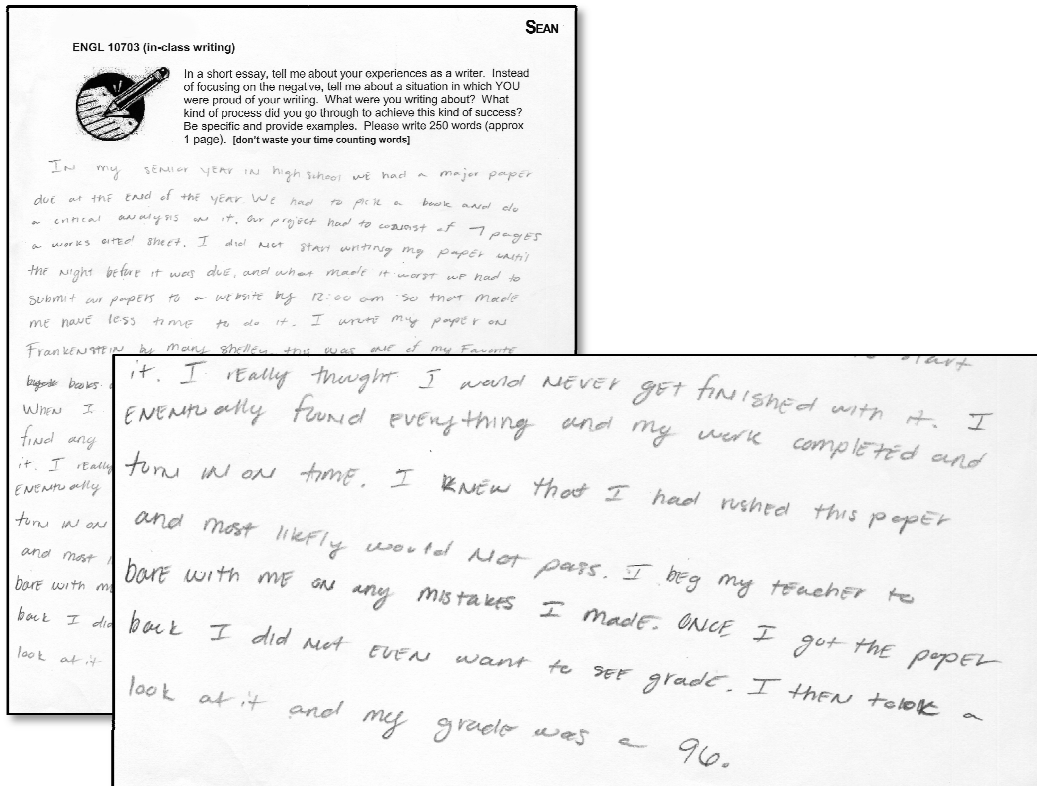 SEAN
ENGL 10703 (in-class writing)
In a short essay, tell me about your experiences as a writer. Instead
of focusing on the negatve, tell me about a situation in which YOU
were proud of your writing. What were you writing about? What
kind of process did you go through to achieve this kind of success?
Be specific and provide examples. Please write 250 words (approx
1 page). [don't waste your time counting words]
In my senior year in high school we had a major paper
due at the end of the year. We had to pick a book and do
a critical analysis on it. Our project had to consist of 7 pages
a works cited sheet. I did not start writing my paper until
the night before it was due, and what made it worst we had to
submit our papers to a website by 12:00 am so that made
me have less time to do it. I wrote my paper on
Frankenstein by Mary Shelley, this was one of my favorite
books
When I
find any
it. I really
enentually
turn in on
and most
bare with me
back I did
look at it
start
it. I really thought I would never get finished with it. I
enentually found everything and my work completed and
turn in on time. I knew that I had rushed this paper
and most likfly would not pass. I beg my teacher to
bare with me on any mistakes I made. Once I got the paper
back I did not even want to see grade. I then took a
look at it and my grade was a 96.